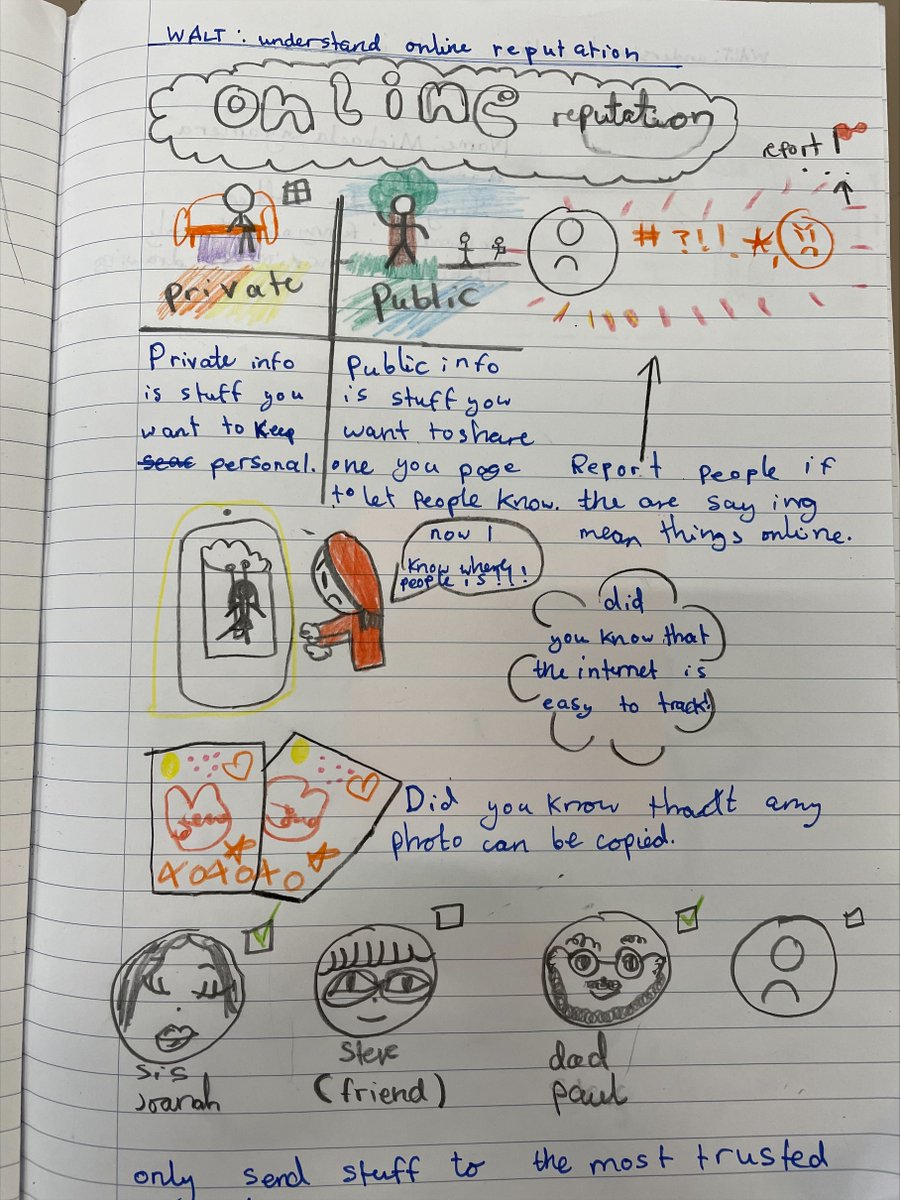 WALT: understand online reputation
online reputation
report
private
Public
#?!! *
Private info
is stuff you
want to keep
personal.
Public info
is stuff you
want to share
one you page
to let people know.
Report people if
the are say ing
mean things online.
now I
know where
people is!!!
did
you know that
the internet is
easy to track!
Did you know that any
photo can be copied.
4040
40
sis
Steve
(friend)
dad
paul
only send stuff to the most trusted